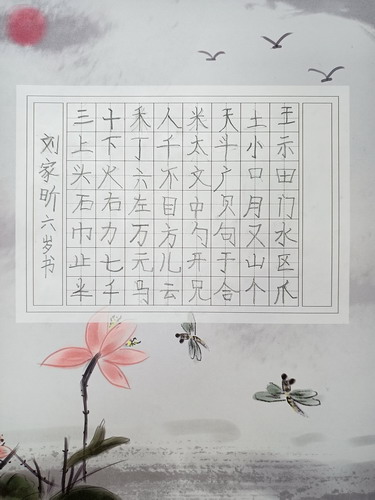 王示田门水区爪
土小口月又山个
天斗户贝句于合
米太文中勺开兄
人千不目方儿云
禾丁六左万元马
十下火右力七千
三上头石巾止
刘家昕六岁书